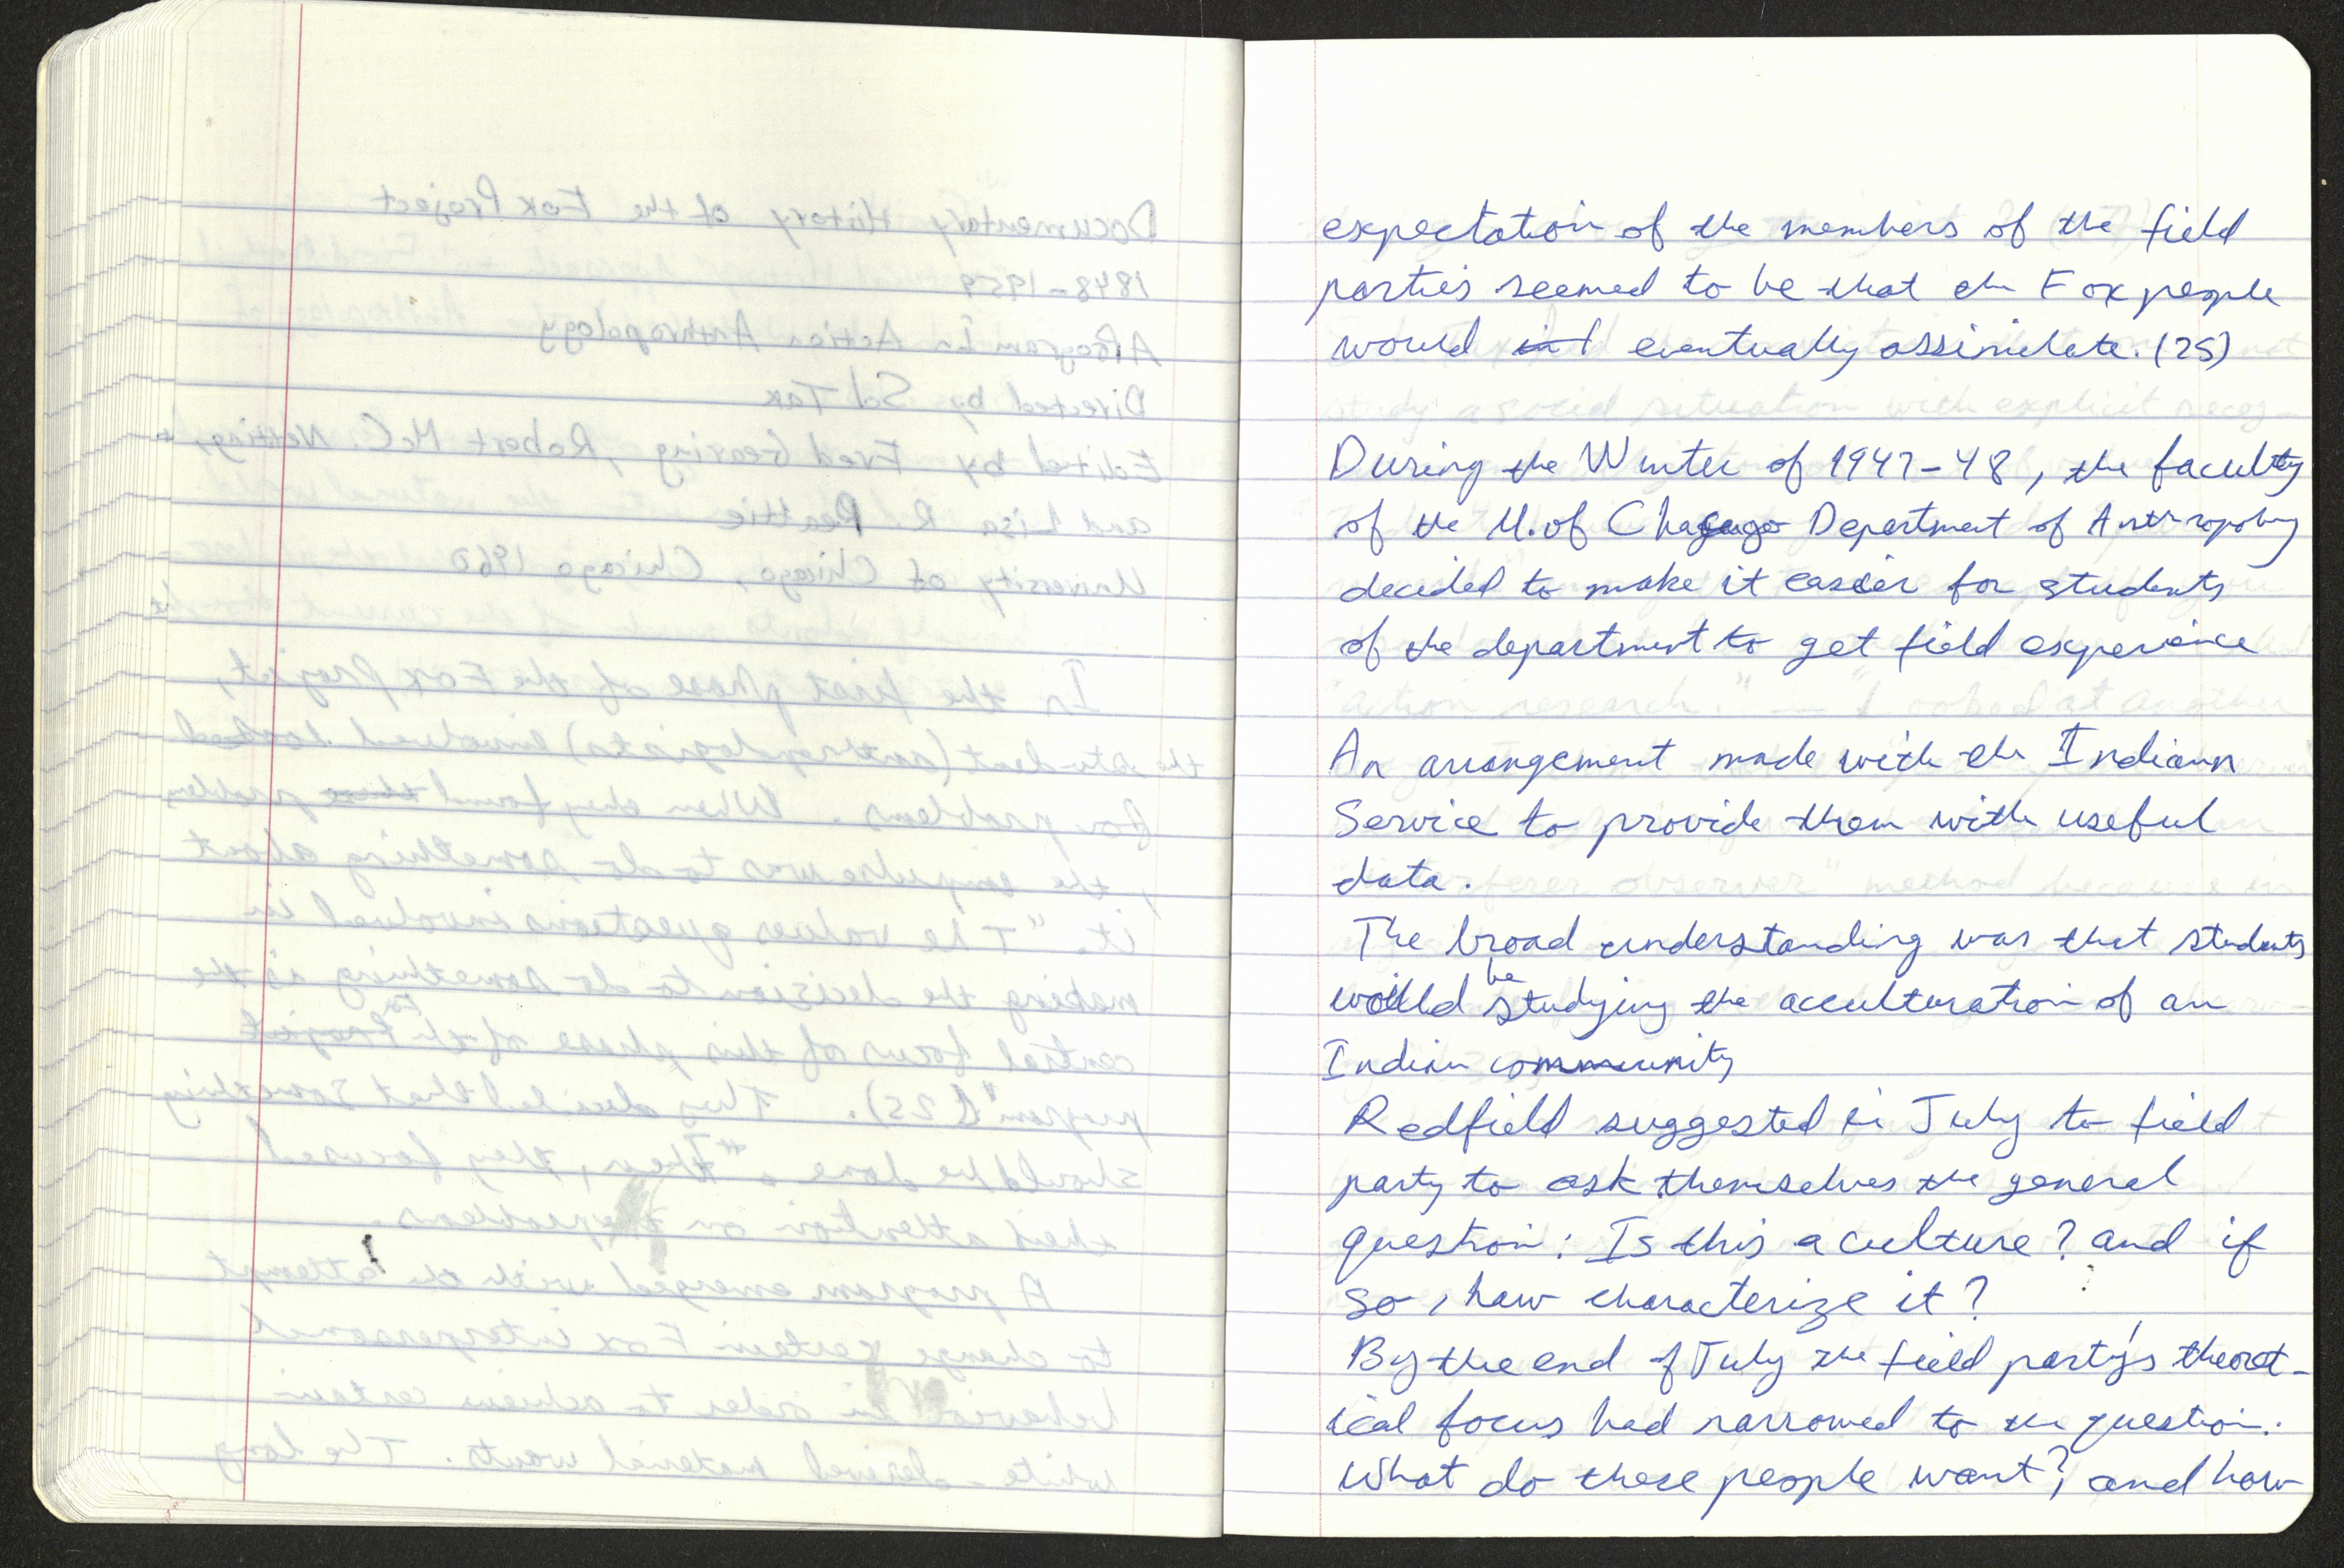 expectation of the members of the field
parties seemed to be that the Fox people
would eventually assimilate. (25)
During the Winter of 1947-48, the faculty
of the U. of Chicago Department of Anthropology
decided to make it easier for students
of the department to get field experience
An arrangement made with the Indian
Service to provide them with useful
data.
The broad understanding was that students
would be studying the acculturation of an
Indian community
Redfield suggested in July to field
party to ask themselves the general
question: Is this a culture? and if
so, how characterize it?
By the end of July the field party's theoret-
ical focus had narrowed to the question:
What do these people want?, and how